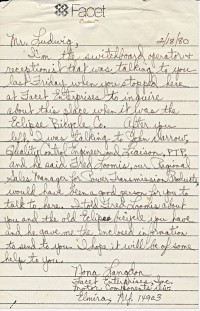 Facet
2/18/80
Mr. Ludwig,
I'm the switchboard operator &
receptionist that was talking to you
last Friday when you stopped here
at Facet Enterprises to inquire
about this place when it was the
Eclipse Bicycle Co. After you
left I was talking to John
Quality Control Engineer and Liaison, PTP,
and he said Fred Loomis, our Regional
Sales Manager for Power Transmission Products
would have been a good person for you to
talk to here. I told Fred Loomis about
you and the old Eclipse bicycle you have
and he gave me the enclosed information
to send to you. I hope it will be of some
help to you.
Nona Langdon
Facet Enterprises, Inc.
Motor Components Div.
Elmira, N.Y. 14903